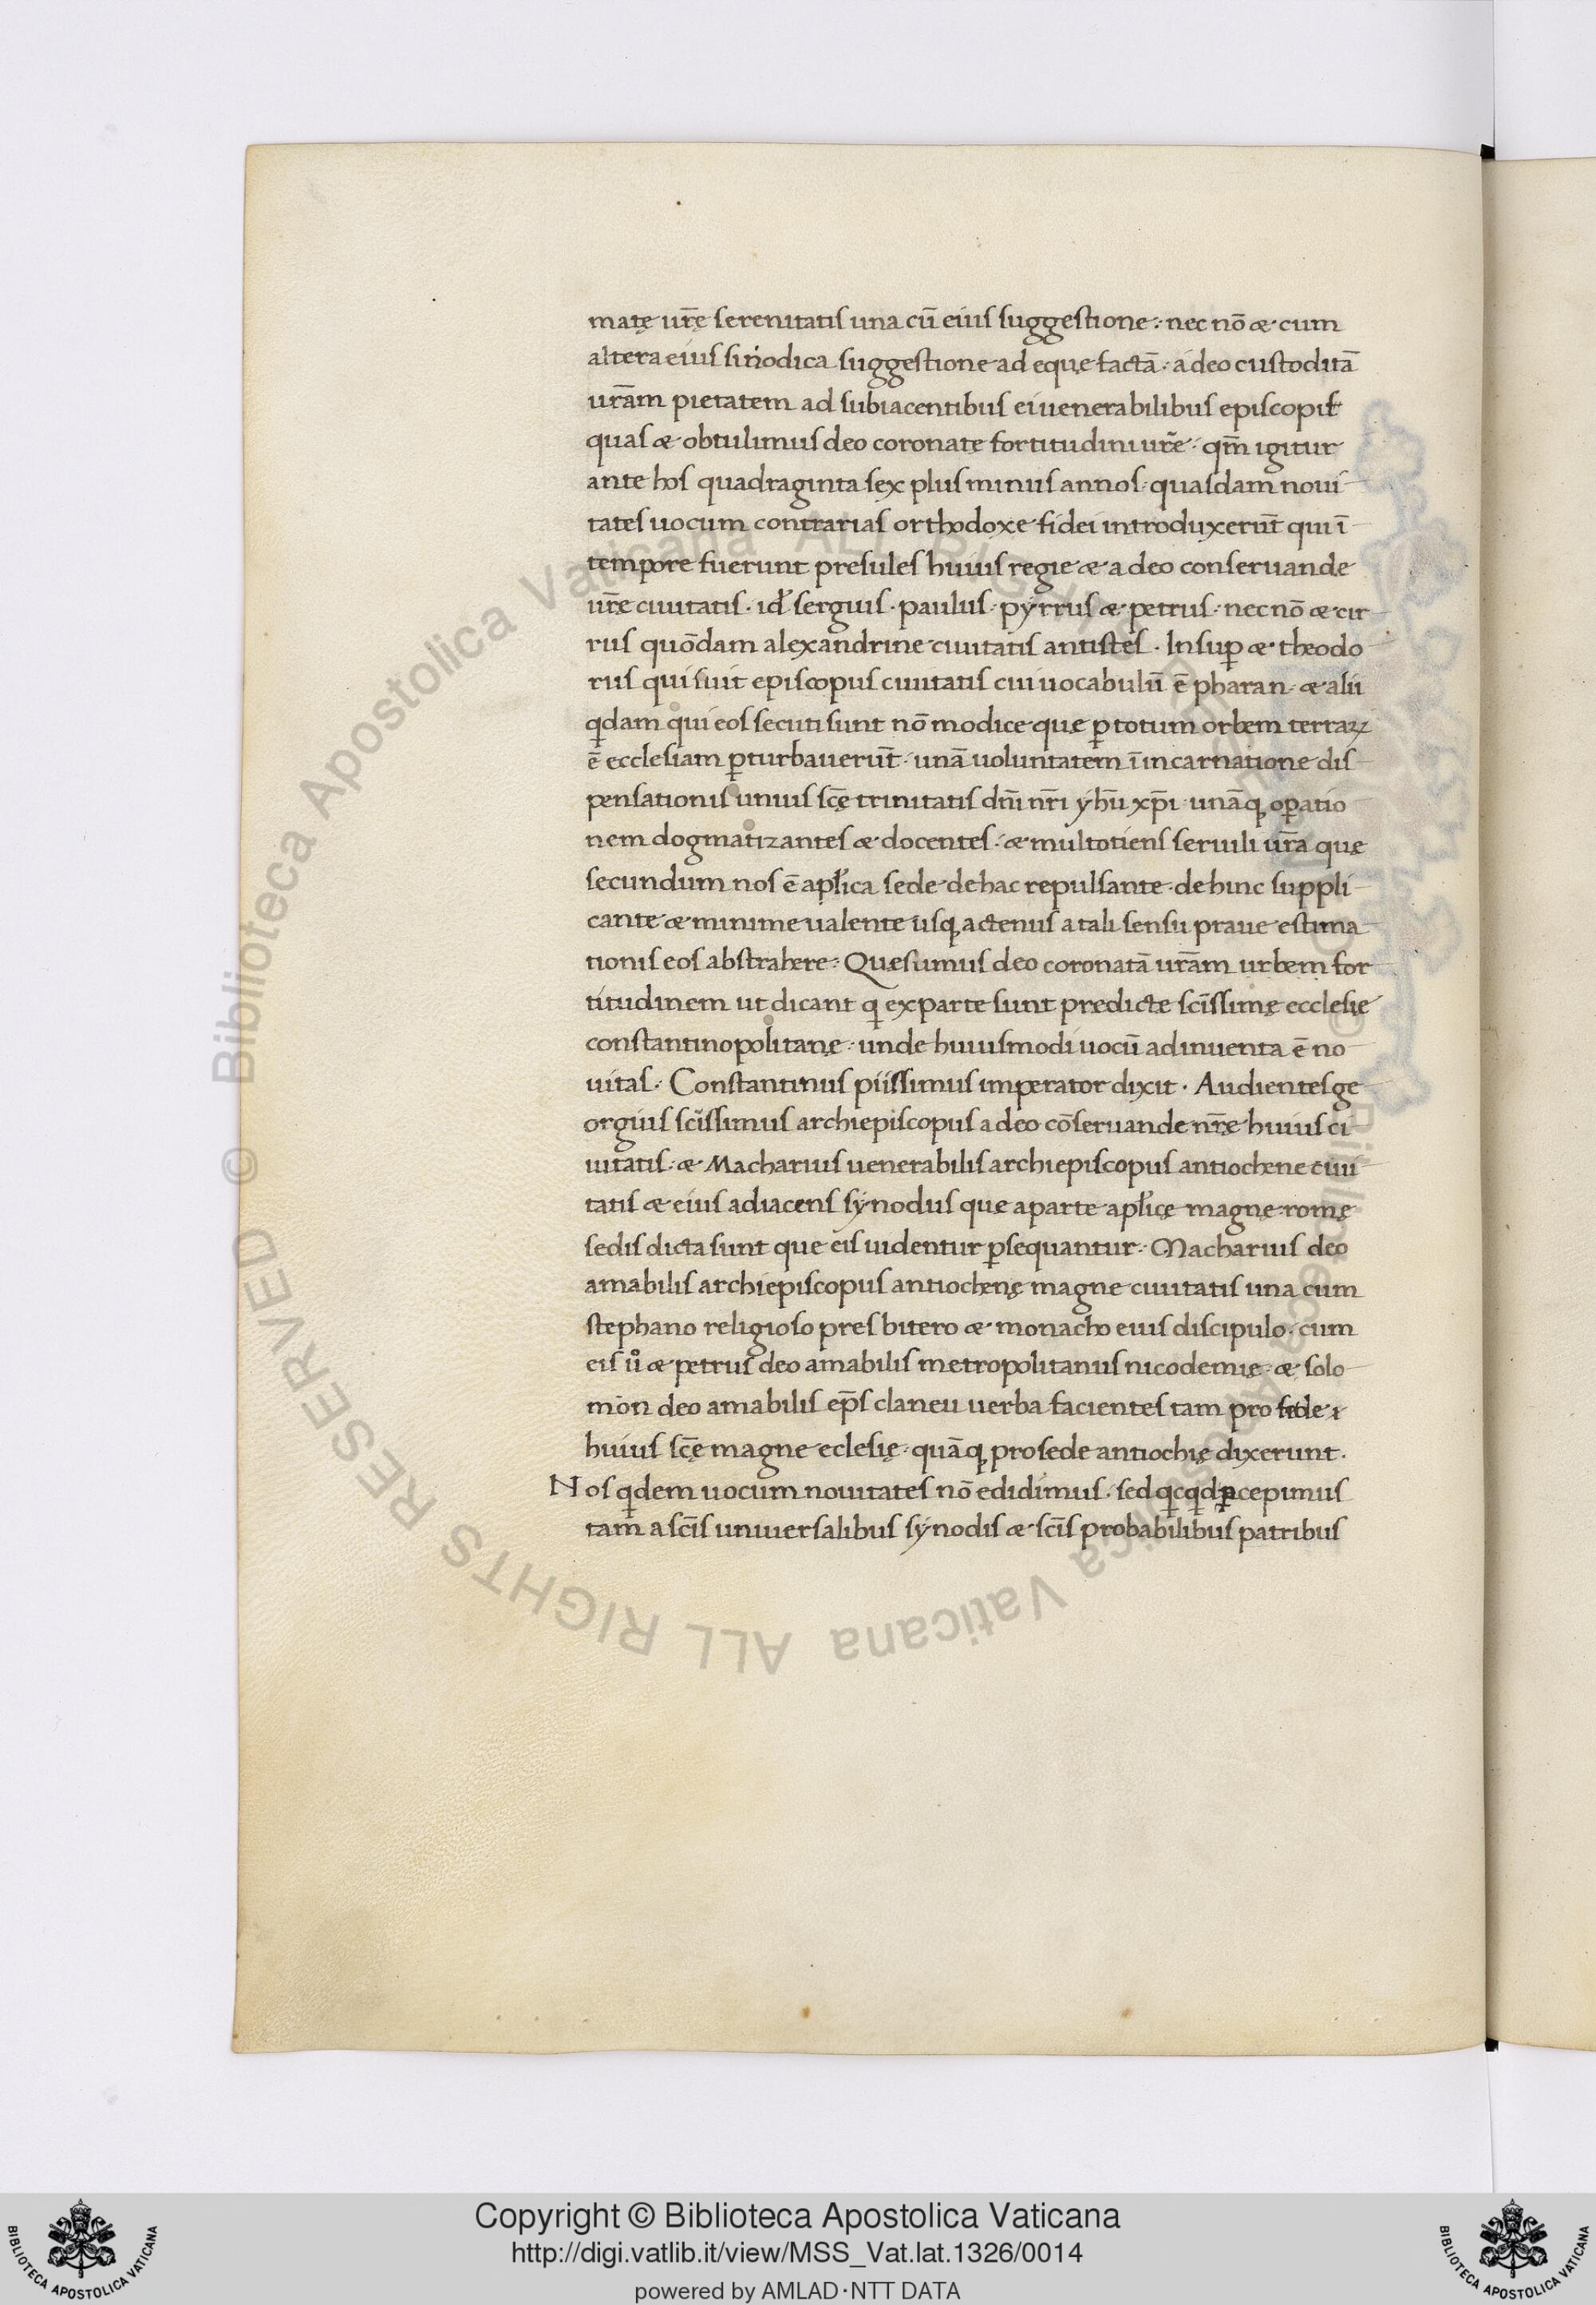 matę ur̄ę serenitatis una cū eius suggestione : nec nō & cum
altera eius sinodica suggestione ad eque factā · a deo custoditā
ur̄am pietatem ad subiacentibus ei uenerabilibus episcopis
quas & obtulimus deo coronatę fortitudini ur̄ę · qm̄ igitur
ante hos quadraginta sex plus minus annos · quasdam noui
tates uocum contrarias orthodoxe fidei introduxerūt qui ī
tempore fuerunt presules huius regie & a deo conseruande
ur̄e ciuitatis · id̄ sergius · paulus · pyrrus & petrus · nec nō & cir
rus quōdam alexandrine ciuitatis antistes · Insuꝑ & theodo
rus qui fuit episcopus ciuitatis cui uocabulū ē pharan · & alii
qdam qui eos secuti sunt nō modice quę ꝑ totum orbem terraꝝ
ē ecclesiam ꝑturbauerūt · unā uoluntatem ī incarnatione dis
pensationis unius scę̄ trinitatis dn̄i nr̄i yhū xp̄i · unāq; oꝑatio
nem dogmatizantes & docentes · & multotiens seruili ur̄a quę
secundum nos ē apl̄ica sede de hac repulsante · dehinc suppli
cante & minime ualente usq; actenus a tali sensu praue estima
tionis eos abstrahere : Quęsumus deo coronatā ur̄am urbem for
titudinem ut dicant q ex parte sunt predictę scīssimę ecclesię
constantinopolitanę · unde huiusmodi uocū adinuenta ē no
uitas · Constantinus piissimus imperator dixit · Audientes ge
orgius scīssimus archiepiscopus a deo cōseruande nr̄ę huius ci
uitatis · & Macharius uenerabilis archiepiscopus antiochene ciui
tatis & eius adiacens synodus quę a parte apl̄icę magnę romę
sedis dicta sunt quę eis uidentur ꝑsequantur · Macharius deo
amabilis archiepiscopus antiochenę magne ciuitatis una cum
stephano religioso presbitero & monacho eius discipulo · cum
eis ů & petrus deo amabilis metropolitanus nicodemię · & solo
mon deo amabilis ep̄s claneu uerba facientes tam pro sede
huius scę̄ magne eclesię · quāq; pro sede antiochię dixerunt ·
Nos qdem uocum nouitates nō edidimus · sed qcqd ꝑcepimus
tam a scīs uniuersalibus synodis & scīs probabilibus patribus
© Biblioteca Apostolica Vaticana ALL RIGHTS RESERVED
Copyright © Biblioteca Apostolica Vaticana
http://digi.vatlib.it/view/MSS_Vat.lat.1326/0014
powered by AMLAD·NTT DATA
BIBLIOTECA APOSTOLICA VATICANA
BIBLIOTECA APOSTOLICA VATICANA